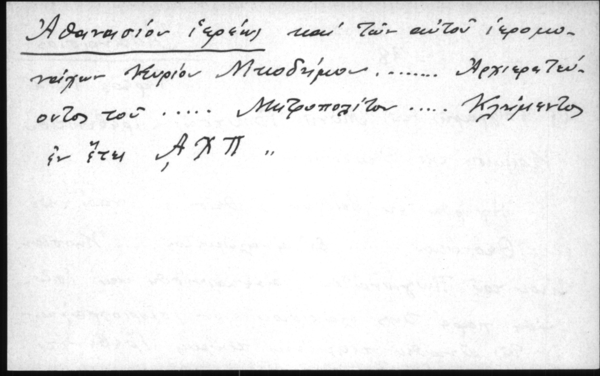 Ἀθανασίου ἱερέως καὶ τῶν αὐτοῦ ἱερομο-
νάχων Κυρίου Νικοδήμου ........ Ἀρχιερατεύ-
οντος τοῦ ..... Μητροπολίτου ..... Κλήμεντος
ἐν ἔτει ͵ΑΧΠ „